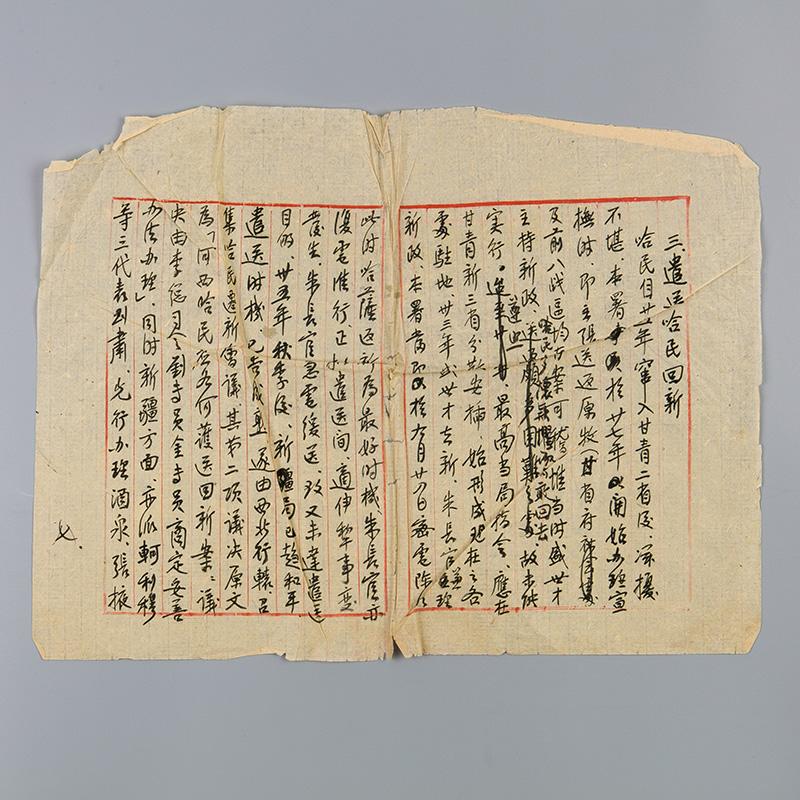 三、遣送哈民回新
哈民自廿五年窜入甘青二省后、深扰
不堪、本署于廿七年开始办理宣
抚时、即主张送返原牧（甘省府
及前八战区均有案可稽）惟当时盛世才
主持新政、哈民多怀畏惧不敢回去故未能
实行。遵照最高当局指令、应在
甘青新三省分散安插、始形成现在之各
处驻地、卅三年盛世才去新、朱长官兼理
新政、本署当于九月廿日密电陈以
此时哈萨返新为最好时机、朱长官亦
复电准行、正拟遣送间、适伊犁事变
发生、朱长官忽电缓送、致又未达遣送
目的、卅五年秋季后、新疆局已趋和平
遣送时机、已告成熟、遂由西北行辕、召
集哈民迁新会议、其第二项议决原文
为「河西哈民应如何护送回新案：议
决由李总司令刘专员金专员商定妥善
办法办理」、同时新疆方面、亦派轲利穆
等三代表到肃、先行办理酒泉、张掖
七、